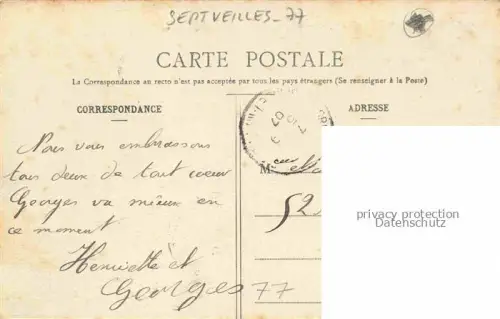 SEPTVEILLES_77
CARTE POSTALE
La Correspondance au recto n'est pas acceptée par tous les pays étrangers (Se renseigner à la Poste)
CORRESPONDANCE
ADRESSE
Nous vous embrassons
tous deux de tout coeur
Georges va mieux en
ce moment
Henriette et
Georges
77
M
52
privacy protection
Datenschutz